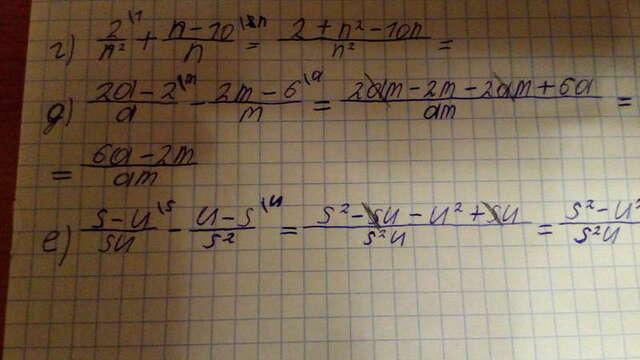 г) 2\1/n² + n-10\n/n = 2+n²-10n/n² =
д) 2a-2\m/a - 2m-6\a/m = 2am-2m-2am+6a/am =
= 6a-2m/am
е) s-u\s/su - u-s\u/s² = s²-su-u²+su/s²u = s²-u²/s²u